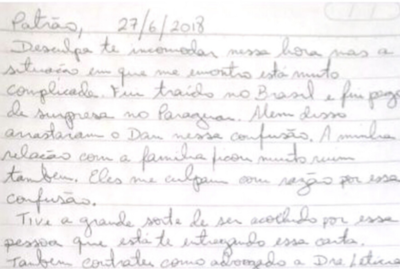 Patrão, 27/6/2018
Desculpa te incomodar nessa hora mas a
situação em que me encontro está muito
complicada. Fui traído no Brasil e fui pego
de surpresa no Paraguai. Alem disso
arrastaram o Dan nessa confusão. A minha
relação com a familia ficou muito ruim
tambem. Eles me culpam com razão por essa
confusão.
Tive a grande sorte de ser acolhido por essa
pessoa que está te entregando essa carta.
Tambem contratei como advogado a Dra Leticia